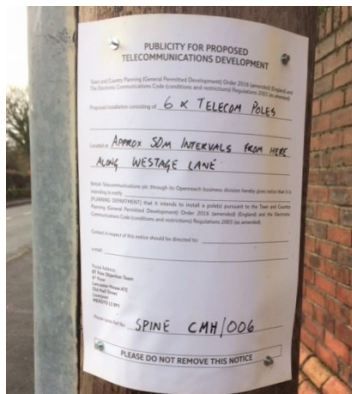 PUBLICITY FOR PROPOSED
TELECOMMUNICATIONS DEVELOPMENT
Town and Country Planning (General Permitted Development) Order 2016 (amended) (England) and
The Electronic Communications Code (conditions and restrictions) Regulations 2003 (as amended)
Proposed installation consisting of 6 x TELECOM POLES
Located at APPROX 50M INTERVALS FROM HERE
ALONG WESTAGE LANE
British Telecommunications plc through its Openreach business division hereby gives notice that it is
intending to notify
(PLANNING DEPARTMENT) that it intends to install a pole(s) pursuant to the Town and Country
Planning (General Permitted Development) Order 2016 (amended) (England) and the Electronic
Communications Code (conditions and restrictions) Regulations 2003 (as amended).
Contact in respect of this notice should be directed to:
e-mail:
Postal Address:
BT Pole Objection Team
4th Floor
Lancaster House ATE
Old Hall Street
Liverpool
SPINE CMH/006
PLEASE DO NOT REMOVE THIS NOTICE